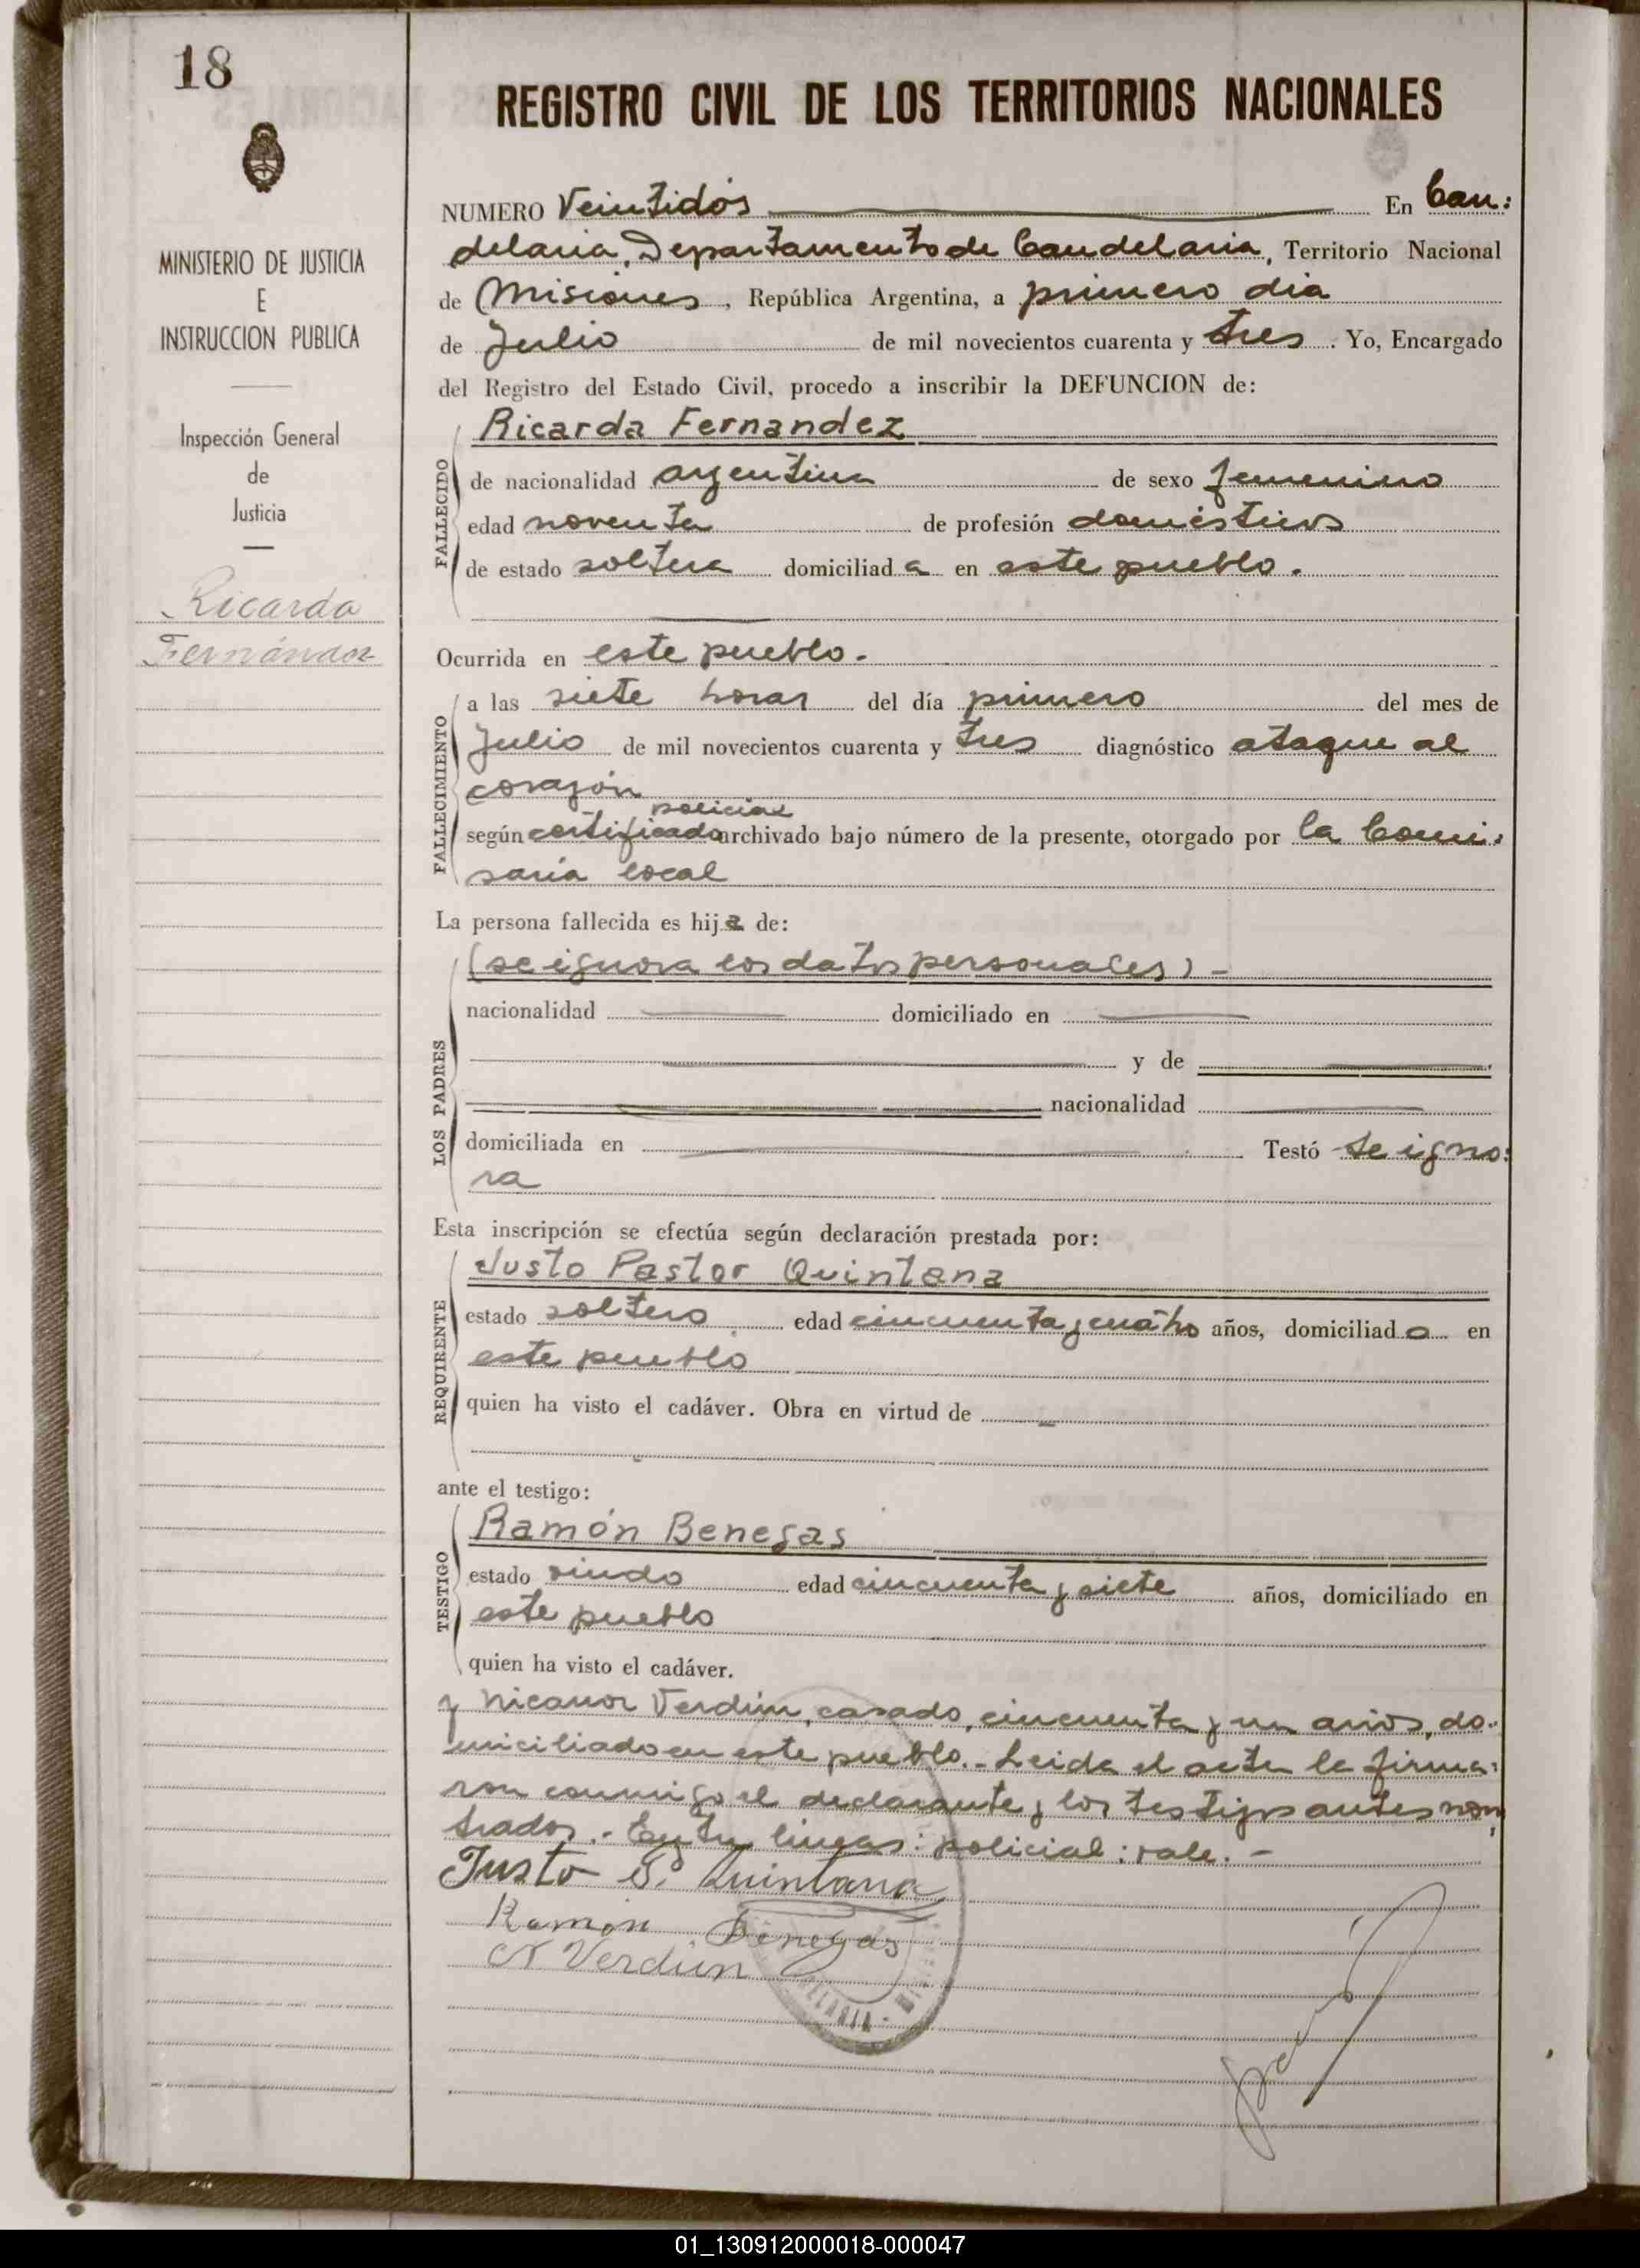 18
REGISTRO CIVIL DE LOS TERRITORIOS NACIONALES
MINISTERIO DE JUSTICIA
E
INSTRUCCION PUBLICA
Inspección General
de
Justicia
Ricarda
Fernández
NUMERO Veintidós En Can:
delaria, Departamento de Candelaria, Territorio Nacional
de Misiones, República Argentina, a primero dia
de Julio de mil novecientos cuarenta y tres. Yo, Encargado
del Registro del Estado Civil, procedo a inscribir la DEFUNCION de:
FALLECIDO
Ricarda Fernandez
de nacionalidad argentina de sexo femenino
edad noventa de profesión domésticos
de estado soltera domiciliada en este pueblo.
Ocurrida en este pueblo.
FALLECIMIENTO
a las siete horas del día primero del mes de
Julio de mil novecientos cuarenta y tres diagnóstico ataque al
corazón
policial
según certificado archivado bajo número de la presente, otorgado por la Comi:
saria local
La persona fallecida es hija de:
LOS PADRES
(se ignora los datos personales) -
nacionalidad domiciliado en
y de
nacionalidad
domiciliada en Testó se igno:
ra
Esta inscripción se efectúa según declaración prestada por:
REQUIRENTE
Justo Pastor Quintana
estado soltero edad cincuenta y cuatro años, domiciliado en
este pueblo
quien ha visto el cadáver. Obra en virtud de -
ante el testigo:
TESTIGO
Ramón Benegas
estado viudo edad cincuenta y siete años, domiciliado en
este pueblo
quien ha visto el cadáver.
y Nicanor Verdún, casado, cincuenta y un años, do:
miciliado en este pueblo.- Leida el acta la firma:
ron conmigo el declarante y los testigos antes nom
brados.- Entre lineas: policial: vale. -
Justo P. Quintana
Ramón Benegas
N Verdún
01_130912000018-000047